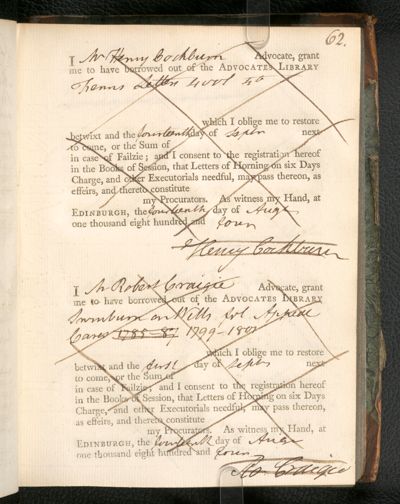 62.
I Mr Henry Cockburn Advocate, grant
me to have borrowed out of the ADVOCATES LIBRARY
Fenns Letters 4 vol 4o
which I oblige me to restore
betwixt and the fourteenth day of Septr next
to come, or the Sum of
in case of Failzie; and I consent to the registration hereof
in the Books of Session, that Letters of Horning on six Days
Charge, and other Executorials needful, may pass thereon, as
effeirs, and thereto constitute
my Procurators. As witness my Hand, at
EDINBURGH, the fourteenth day of Augt
one thousand eight hundred and four
Henry Cockburn
I Mr Robert Craigie Advocate, grant
me to have borrowed out of the ADVOCATES LIBRARY
Swinburn on Wills fol Appeal
Cases 1788-87 1799-1801
which I oblige me to restore
betwixt and the first day of Septr next
to come, or the Sum of
in case of Failzie; and I consent to the registration hereof
in the Books of Session, that Letters of Horning on six Days
Charge, and other Executorials needful, may pass thereon,
as effeirs, and thereto constitute
my Procurators. As witness my Hand, at
EDINBURGH, the fourteenth day of Augt
one thousand eight hundred and four
Ro Craigie